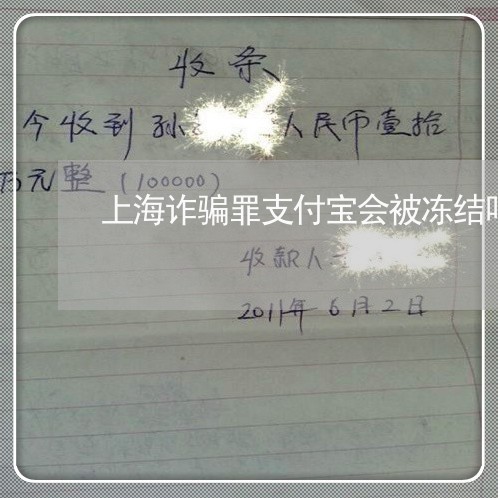 收条
今收到孙 人民币壹拾
万元整（100000）
上海诈骗罪支付宝会被冻结
收款人
2011年6月2日